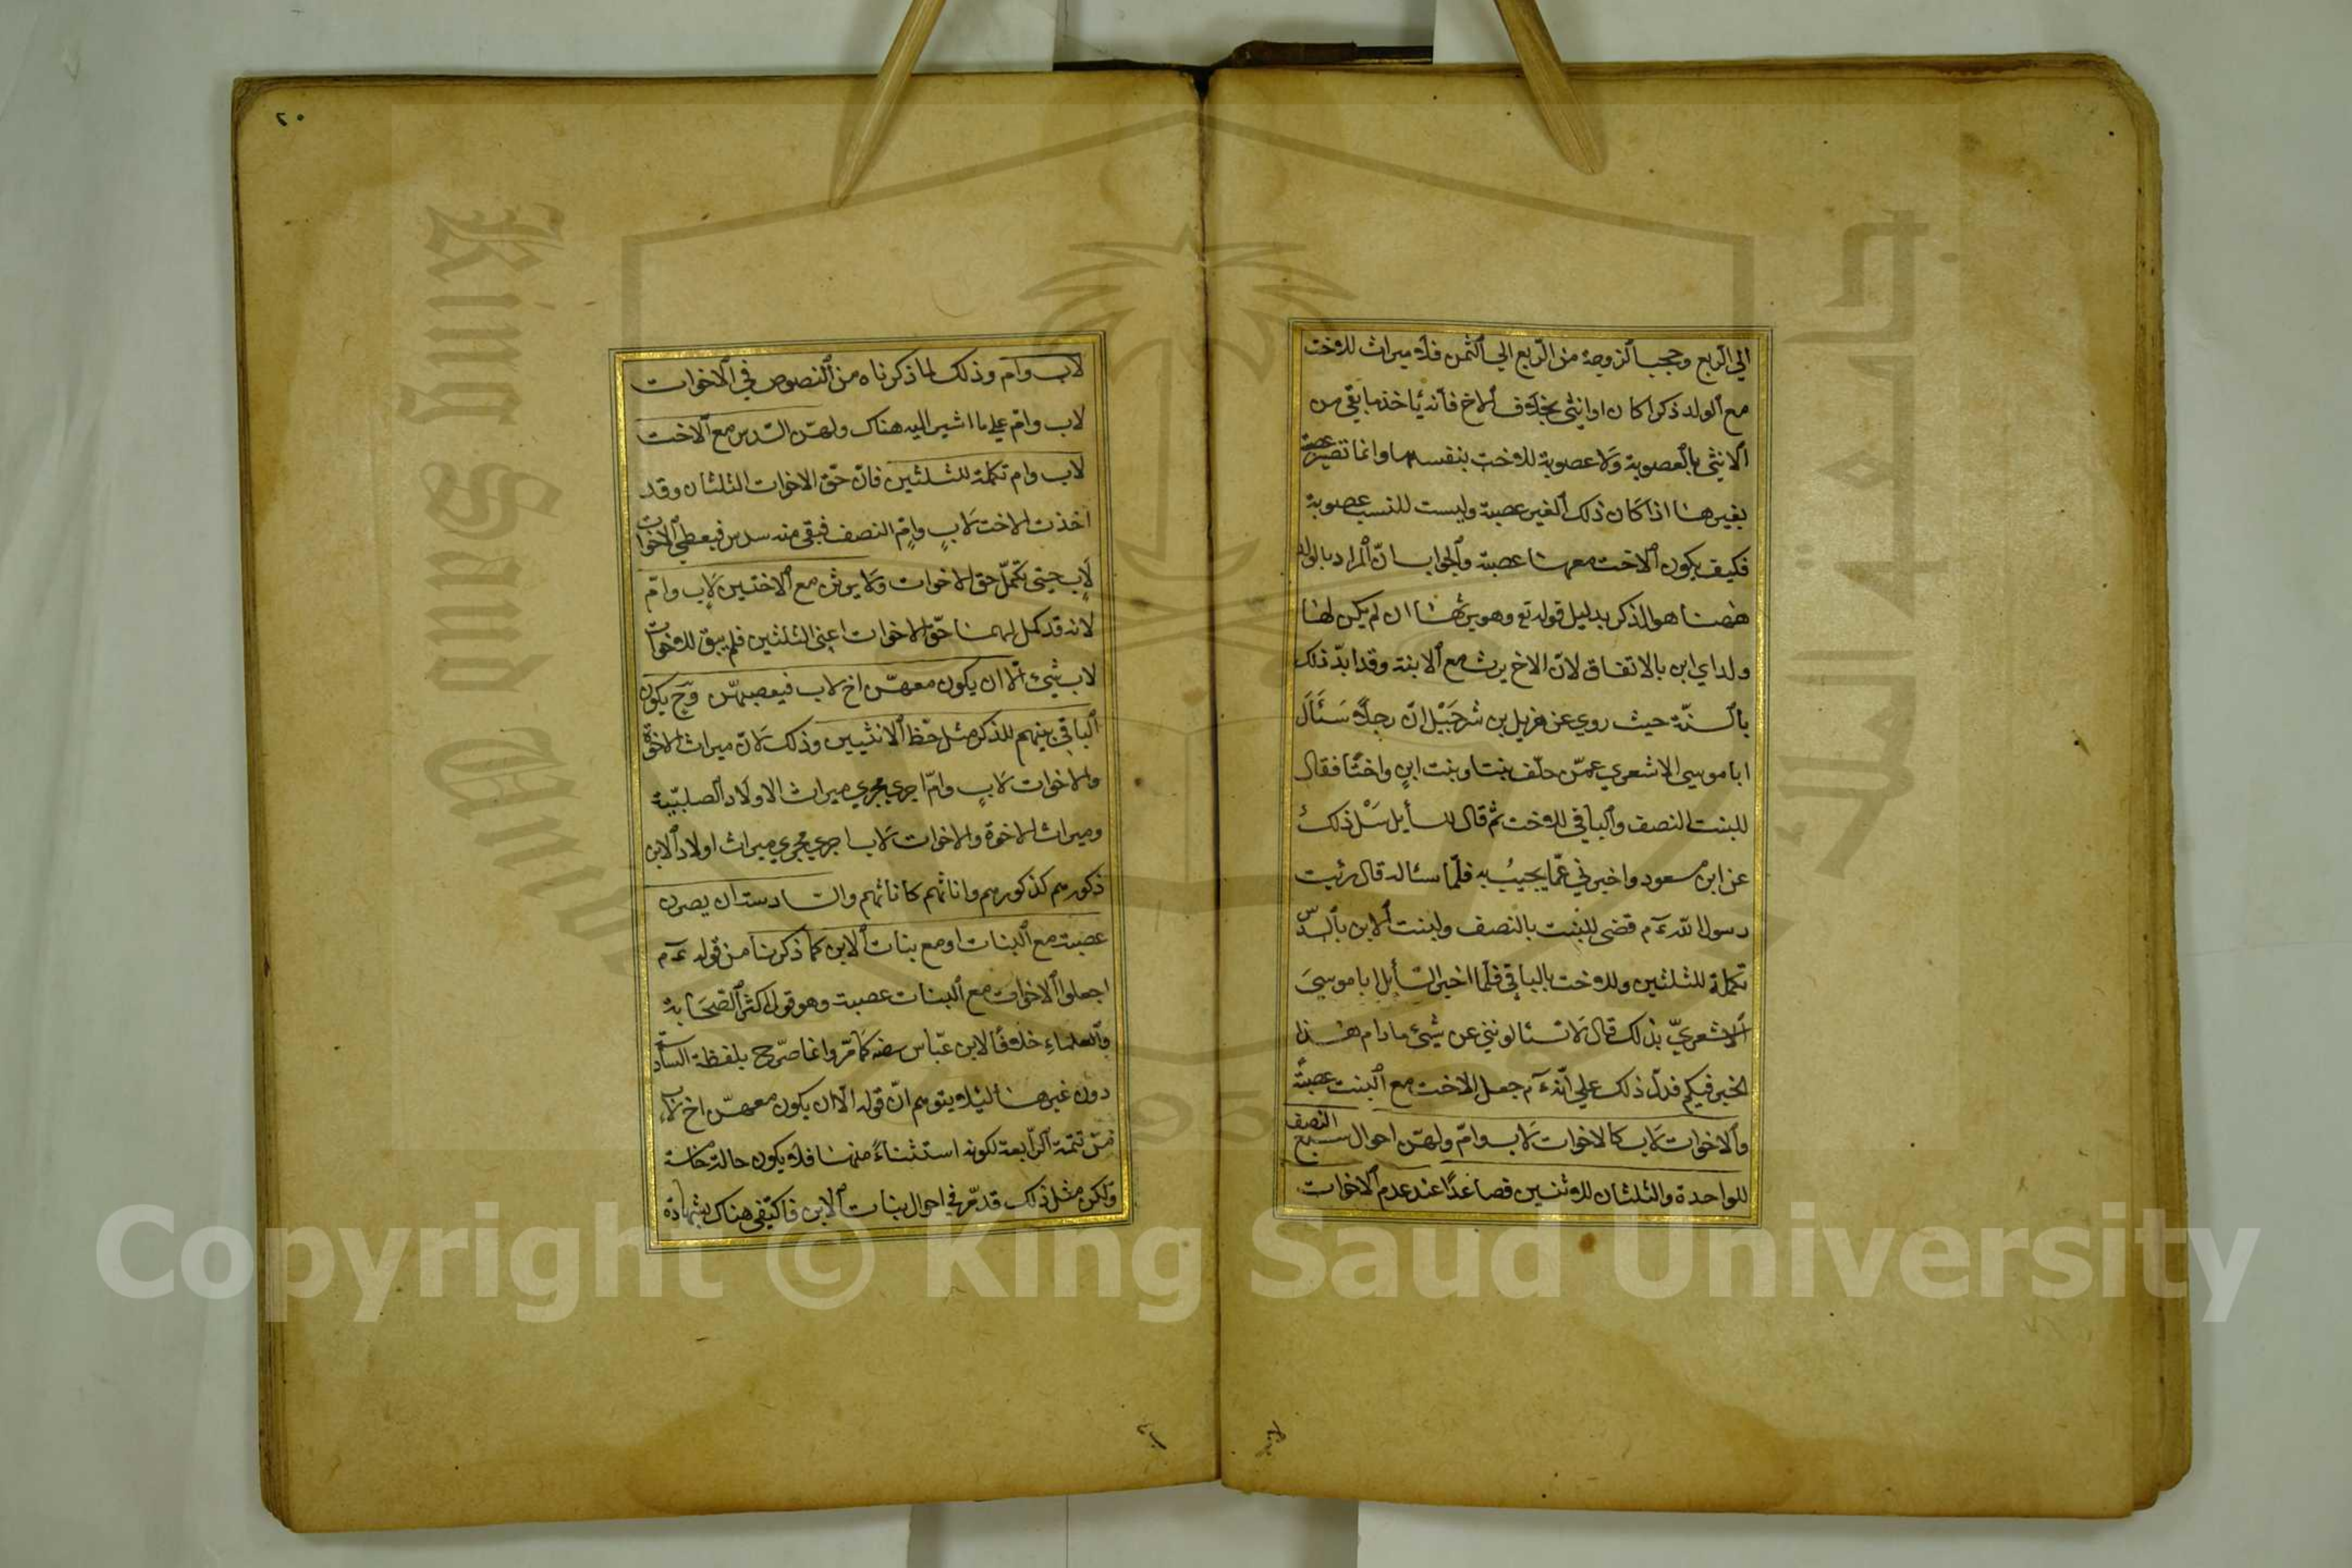 الي الربع وحجب الزوجة من الربع الي الثمن فلا ميراث للاخت
مع الولد ذكرا كان او انثي بخلاف الاخ فانه يأخذ ما بقي من
الانثي بالعصوبة ولا عصوبة للاخت بنفسها وانما تصير عصبة
بغيرها اذا كان ذلك الغير عصبة وليست للنسب عصوبة
فكيف يكون الاخت معها عصبة والجواب انّ المراد بالولد
ههنا هو الذكر بدليل قوله تع وهو يرثها ان لم يكن لها
ولد اي ابن بالاتفاق لانّ الاخ يرث مع الابنة وقد ابدّ ذلك
بالسنّة حيث روي عن هزيل بن شرحَبيْل انّ رجلاً سَئَاَلَ
ابا موسي الاشعري عمّن خلّف بنتا وبنت ابنٍ واختًا فقال
للبنت النصف والباقي للاخت ثم قال للسأيل سَلْ ذلك
عن ابن مسعود واخبرني عمّا يجيبُ به فلمّا سئاله قال رئيت
رسول الله ءم قضي للبنت بالنصف ولبنت الابن بالسّدس
تكملة للثلثين وللاخت بالباقي فلمّا اخبر السّأيل ابا موسيَ
الاشعريّ بذلك قال لا تسئالونني عن شيئ مادام هذا
الخبر فيكم فدلّ ذلك علي انّه ءم جعل الاخت مع البنت عصبةً
والاخوات لاب كالاخوات لاب وامّ ولهنّ احوال سبع النصف
للواحدة والثلثان للاثنين فصاعدًا عند عدم الاخوات
٢٠
لاب وام وذلك لما ذكرناه من النصوص في الاخوات
لاب وامّ علي ما اشير اليه هناك ولهنّ السّدس مع الاخت
لاب وام تكملة للثلثين فانّ حقّ الاخوات الثلثان وقد
اخذت الاخت لابٍ وامٍّ النصف فبقي منه سدس فيعطي الاخوات
لاب حيتي تكمّل حق الاخوات ولا يرثن مع الاختين لاب وامّ
لانه قد كمل لهما حقّ الاخوات اعني الثلثين فلم يبق للاخوات
لاب شيئ الّا ان يكون معهنّ اخ لاب فيعصبهنّ وح يكون
الباقي بينهم للذكر مثل حظّ الانثيين وذلك لانّ ميراث الاخوة
والاخوات لابٍ وامّ اجري مجري ميراث الاولاد الصلبّية
وميراث الاخوة والاخوات لاب اجري مجري ميراث اولاد الابن
ذكورهم كذكورهم واناثهم كاناثهم والسّادسة ان يصرن
عصبة مع البنات او مع بنات الابن كما ذكرنا من قوله ءم
اجعلوا الاخوات مع البنات عصبة وهو قول اكثر الصّحَابة
والعلماءِ خلافًا لابن عبّاس رضه كما مرّ وانما صرّح بلفظة السادسة
دون غيرها لئيلا يتوهم انّ قوله الّا ان يكون معهنّ اخ لاب
من تتمّة الرّابعة لكونه استثناءً منها فلا يكون حالة خامسة
ولكن مثل ذلك قد مرّ في احوال بنات الابن فاكتفي هناك بشهادة
King Saud University
Copyright © King Saud University